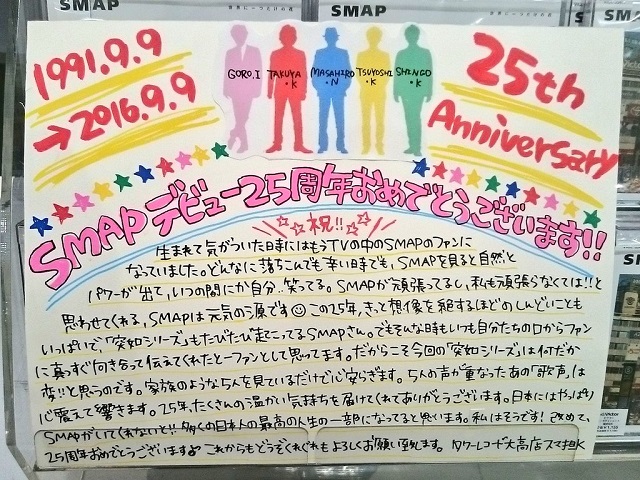 SMAP
SMAP
SMAP
1991.9.9
→2016.9.9
GORO.I
TAKUYA.K
MASAHIRO.N
TSUYOSHI.K
SHINGO.K
25th
Anniversary
SMAPデビュー25周年おめでとうございます!!
☆☆祝!!☆☆
生まれて気がついた時にはもうTVの中のSMAPのファンに
なっていました。どんなに落ちこんでも辛い時でも、SMAPを見ると自然と
パワーが出て、いつの間にか自分..笑ってる。SMAPが頑張ってるし、私も頑張らなくては!!と
思わせてくれる、SMAPは元気の源です☺この25年、きっと想像を絶するほどのしんどいことも
いっぱいで、「突如シリーズ」もたびたび起こってるSMAPさん。でもそんな時もいつも自分たちの口からファン
に真っすぐ向き合って伝えてくれたとファンとして思ってます。だからこそ今回の「突如シリーズ」は何だか
変!!と思うのです。家族のような5人を見ているだけで心安らぎます。5人の声が重なったあの「歌声」は
心震えて響きます。25年、たくさんの温かい気持ちを届けてくれてありがとうございます。日本にはやっぱり
SMAPがいてくれないと!!多くの日本人の最高の人生の一部になってると思います。私はそうです!改めて、
25周年おめでとうございます♪これからもどうぞくれぐれもよろしくお願い致します。タワーレコード大高店スマ担K